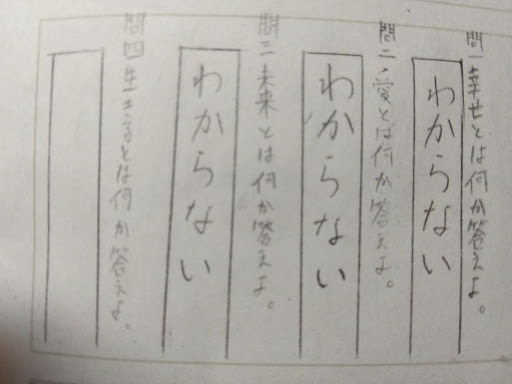 問一幸せとは何か答えよ。
わからない
問二愛とは何か答えよ。
わからない
問三未来とは何か答えよ。
わからない
問四生きるとは何か答えよ。